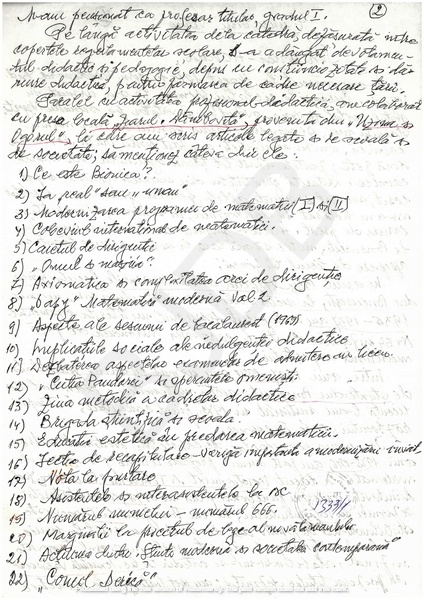 2
M-am pensionat ca profesor titular, gradul I.
Pe lângă activitatea de la catedră, depășurată între
copertele regulamentelor școlare, s-a adăugat devotamen-
tul didactic și pedagogic, depus cu conștiinciozitate și dă-
ruire didactică, pentru formarea de cadre necesare țării.
Paralel cu activitatea profesional-didactică, am colaborat
cu presa locală ziarul „Dâmbovița", provenită din „Uzina și
Ogorul", la care am scris articole legate și de școală și
de societate, să menționez câteva din ele:
1) Ce este Bionica?
2) La „real" sau „uman"
3) Modernizarea programei de matematică I și II
4) Colocviul internațional de matematică.
5) Caietul de diriginte
6) „Omul și mașina".
7) Axiomatica și complexitatea orei de dirigenție
8) "Matematică modernă vol. 2
9) Aspecte ale sesiunii de bacalaureat (1969)
10) Implicațiile sociale ale indulgenței didactice
11) Dezbaterea aspectelor examenelor de admitere în liceu
12) „Cutia Pandorei" și speranțele omenești
13) Ziua metodică a cadrelor didactice
14) Brigada științifică și școala.
15) Educația estetică în predarea matematicii.
16) Lecția de recapitulare – verigă importantă a modernizării învăț.
17) Nota la purtare
18) Asistențele și interasistențele la
19) Numărul numelui – numărul 666.
1333/1
20) Marginalii la proiectul de lege al învățământului
21) Acțiunea dintre „Știința modernă și societatea contemporană"
22) „Conul